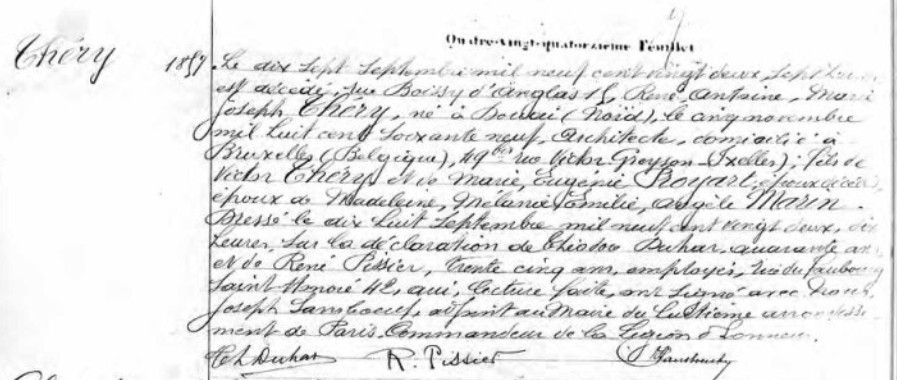 Quatre-vingt-quatorzième Feuillet
Théry
1857
Le dix sept Septembre mil neuf cent vingt deux, sept heures
est décédé, rue Boissy d'Anglas 15, René, Antoine, Marie
Joseph Théry, né à Douai (Nord), le cinq novembre
mil huit cent soixante neuf, Architecte, domicilié à
Bruxelles (Belgique), 49 bis rue Victor Greyson-Ixelles); fils de
Victor Théry et de Marie, Eugénie Royart, époux décédés,
époux de Madeleine, Mélanie, Emilie, Angèle Marin.
Dressé le dix huit Septembre mil neuf cent vingt deux, dix
heures, sur la déclaration de Duhar, quarante ans
et de René Pissier, trente cinq ans, employés, rue du Faubourg
Saint Honoré 42, qui, lecture faite, ont signé avec Nous,
Joseph adjoint au Maire du huitième arrondisse
ment de Paris, Commandeur de la Légion d'honneur.
Ch Duhar R. Pissier